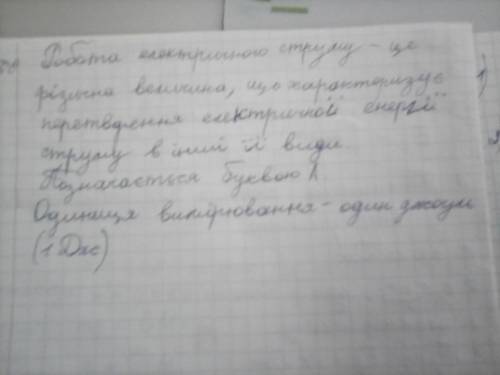 Робота електричного струму - це
фізична величина, що характеризує
перетворення електричної енергії
струму в інші її види.
Позначається буквою А
Одиниця вимірювання - один джоуль
(1 Дж)